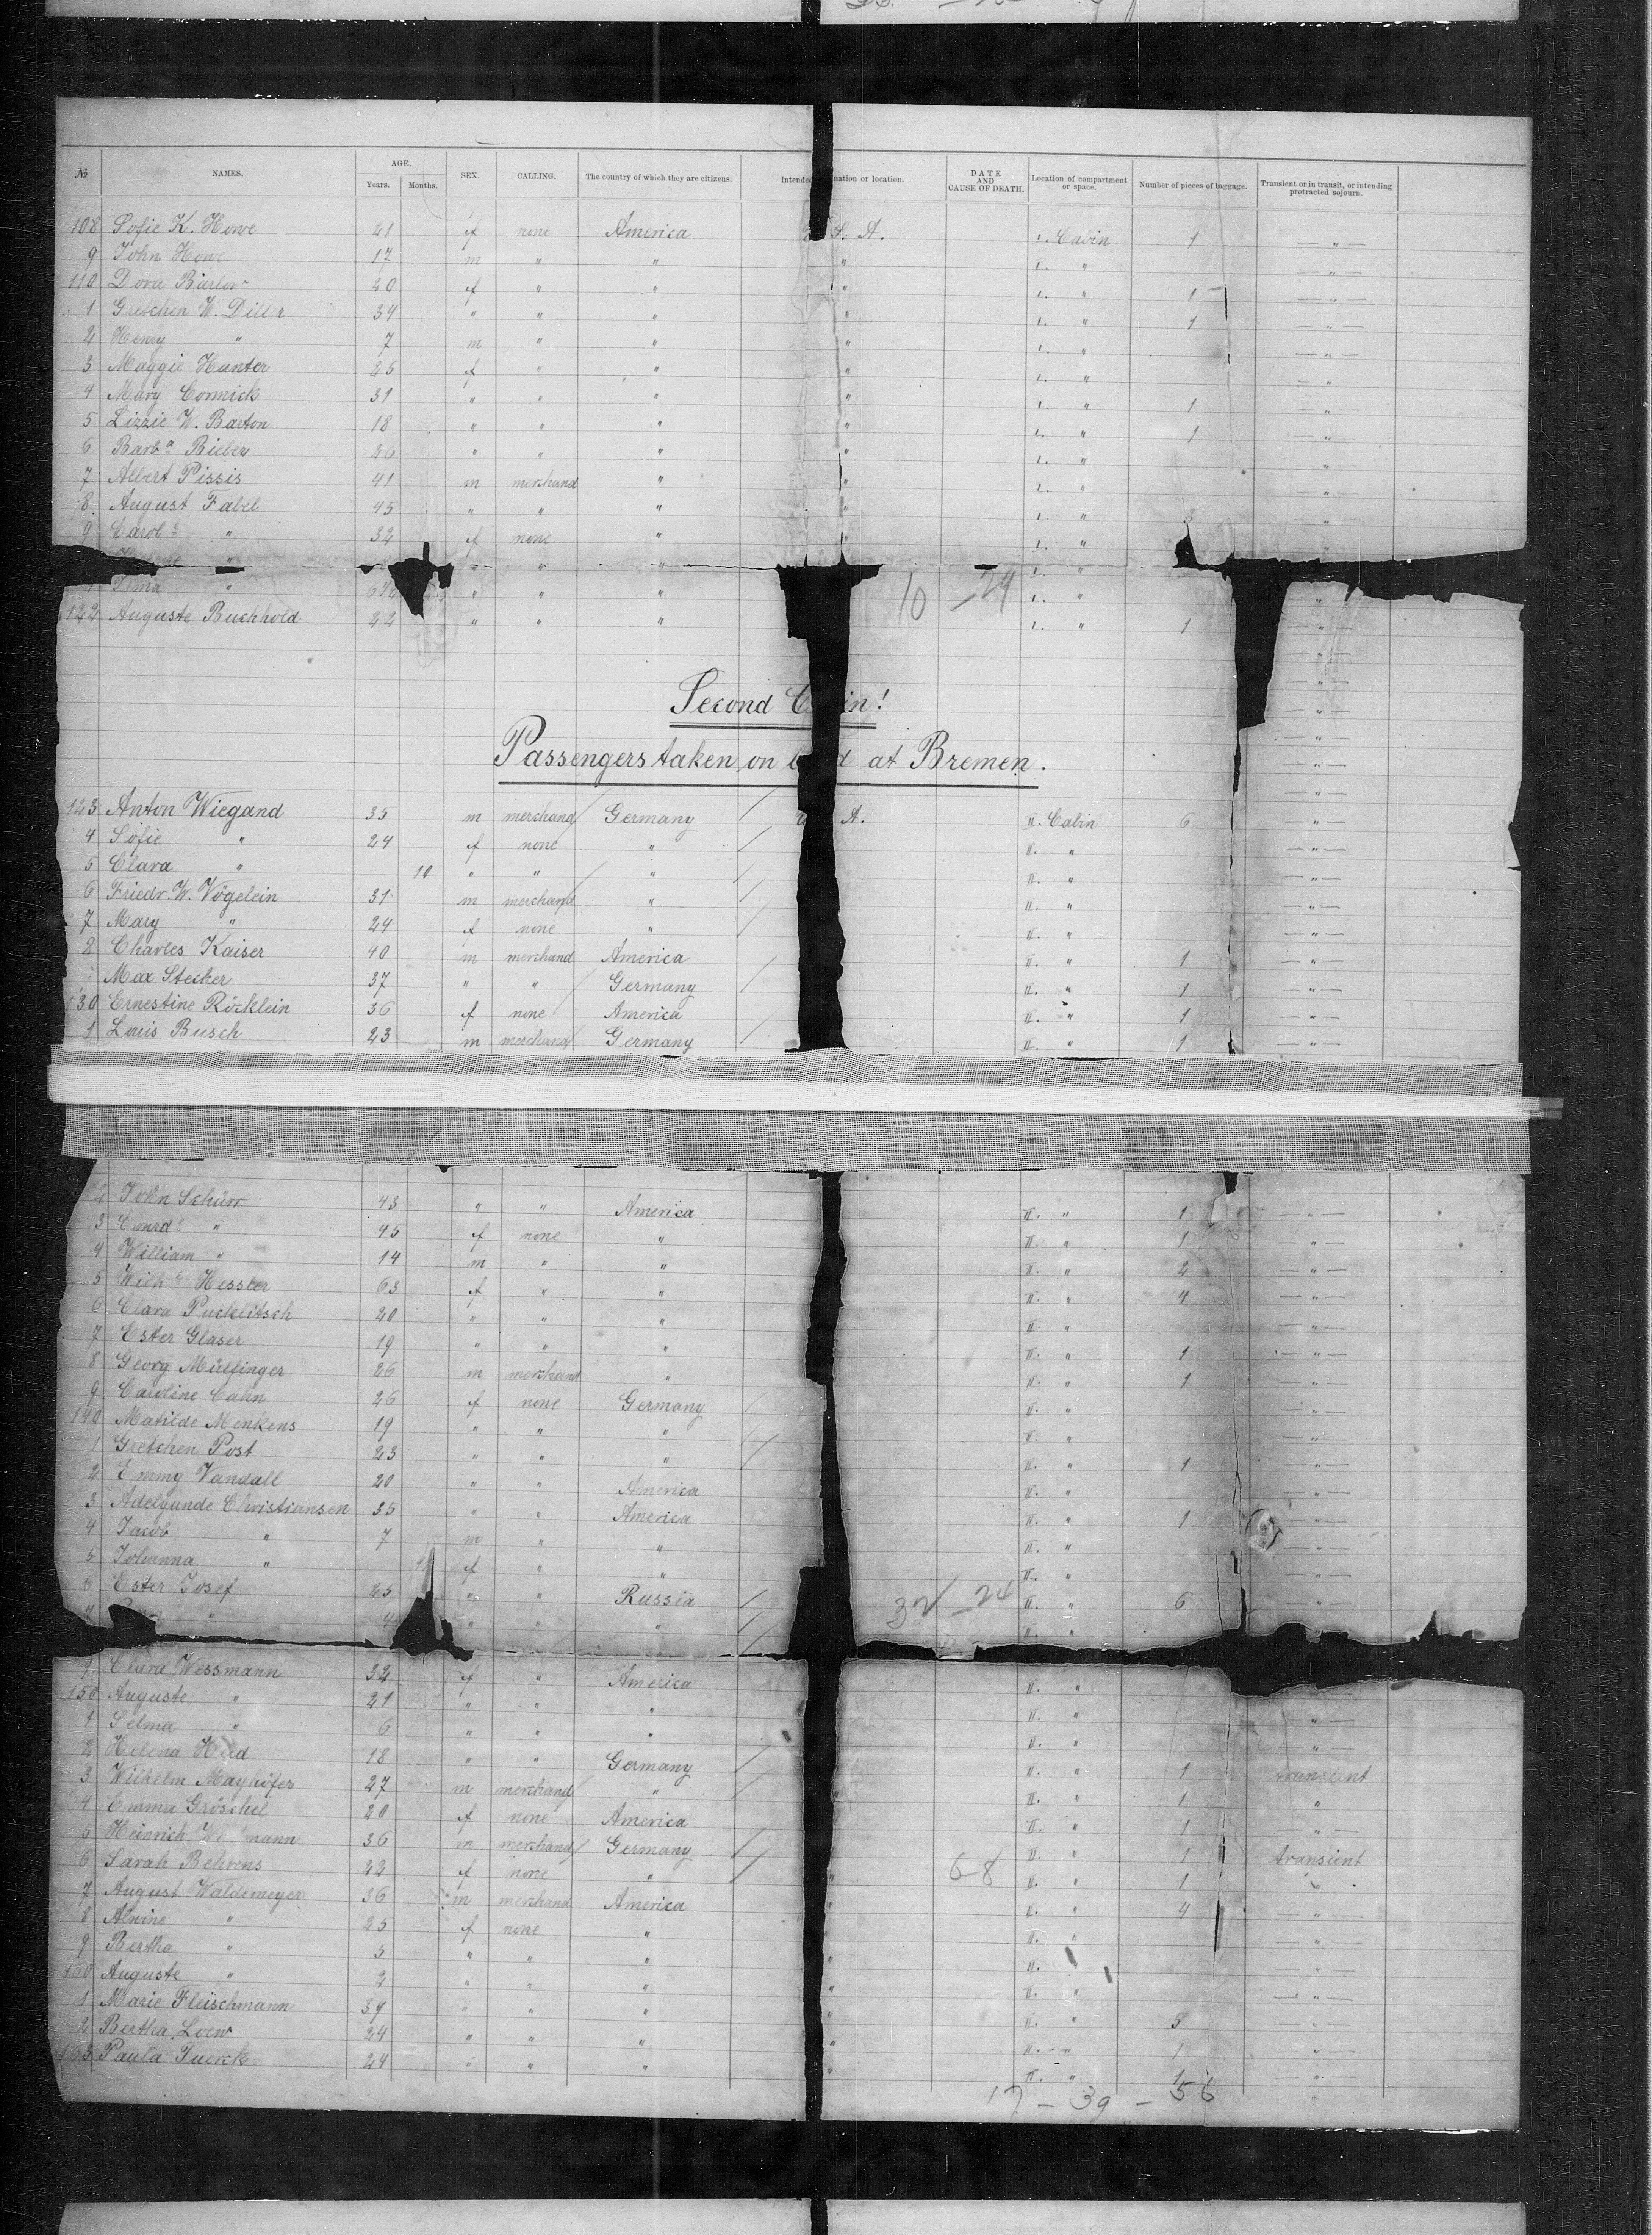 № NAMES. AGE. Years. Months. SEX. CALLING. The country of which they are citizens. Intended nation or location. DATE AND CAUSE OF DEATH. Location of compartment or space. Number of pieces of baggage. Transient or in transit, or intending protracted sojourn.
108 Sofie K. Howe 41 f none America S. A. I. Cabin 1 — " —
9 John Howe 17 m " " " I. " — " —
110 Dora 20 f " " " I. " 1 — " —
1 Gretchen W. Diller 34 " " " " I. " 1 — " —
2 Henry " 7 m " " " I. " — " —
3 Maggie Hunter 25 f " " " I. " — " —
4 Mary Cormick 31 " " " " I. " 1 — " —
5 Lizzie W. Barton 18 " " " " I. " 1 — " —
6 Barbª Bieber 26 " " " " I. " "
7 Albert Pissis 41 m merchand " " I. " "
8 August Fabel 45 " " " " I. " 3 "
9 Carolᵉ " 32 f none " " I. " "
" " " " I. "
1 Irma " " " " I. " "
122 Auguste Buchhold 22 " " " I. " 1 "
10 — 24
Second C in!
Passengers taken on b d at Bremen.
123 Anton Wiegand 35 m merchand Germany A. II. Cabin 6 — " —
4 Sofie " 24 f none " II. " — " —
5 Clara " 10 " " " II. " — " —
6 Friedr. W. Vögelein 31 m merchand " II. " — " —
7 Mary " 24 f none " II. " — " —
8 Charles Kaiser 40 m merchand America II. " 1 — " —
Max Stecker 37 " " Germany II. " 1 — " —
130 Ernestine Röcklein 36 f none America II. " 1 — " —
1 Louis Busch 23 m merchand Germany II. " 1 — " —
2 John Schürr 43 " " America II. " 1 — " —
3 Conrdᵉ " 45 f none " II. " 1 — " —
4 William " 14 m " " II. " 2 — " —
5 Wilhᵉ Hessler 63 f " " II. " 4 — " —
6 Clara Pucklitsch 20 " " " II. " — " —
7 Ester Glaser 19 " " " II. " 1 — " —
8 Georg Müllinger 26 m merchand " II. " 1 — " —
9 Caroline Cahn 26 f none Germany II. " — " —
140 Matilde Menkens 19 " " " II. " — " —
1 Gretchen Post 23 " " " II. " 1 — " —
2 Emmy Vandall 20 " " America II. " — " —
3 Adelgunde Christiansen 35 " " America II. " 1 — " —
4 Jacob " 7 m " " II. " — " —
5 Johanna " f " " II. " — " —
6 Ester Josef 25 " " Russia II. " 6 — " —
7 " 4 " " " II. "
32 — 24
9 Clara Wessmann 32 f " America II. "
150 Auguste " 21 " " " II. " — " —
1 Selma " 6 " " " II. " — " —
2 Helena 18 " " Germany II. " 1 transient
3 Wilhelm Mayhöfer 27 m merchand " " II. " 1 "
4 Emma Gröschel 20 f none America II. " 1 — " —
5 Heinrich mann 36 m merchand Germany II. " 1 transient
6 Sarah Behrens 22 f none " " 6-8 II. " 1 "
7 August Waldemeyer 36 m merchand America " II. " 4 — " —
8 Alwine " 25 f none " " II. " — " —
9 Bertha " 5 " " " " II. — " —
160 Auguste " 2 " " " " II. " — " —
1 Marie Fleischmann 39 " " " " II. " 5 — " —
2 Bertha Loew 24 " " " " II. " 1 — " —
163 Paula Tuerck 24 " " " " II. " 1 — " —
17 — 39 — 56